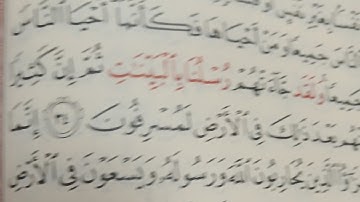 أَحْيَا النَّاسَ
جَمِيعًا وَمَنْ أَحْيَاهَا فَكَأَنَّمَا أَحْيَا النَّاسَ
جَمِيعًا وَلَقَدْ جَاءَتْهُمْ رُسُلُنَا بِالْبَيِّنَاتِ ثُمَّ إِنَّ كَثِيرًا
بَعْدَ ذَٰلِكَ فِي الْأَرْضِ لَمُسْرِفُونَ ٣٢ إِنَّمَا
الَّذِينَ يُحَارِبُونَ اللَّهَ وَرَسُولَهُ وَيَسْعَوْنَ فِي الْأَرْضِ